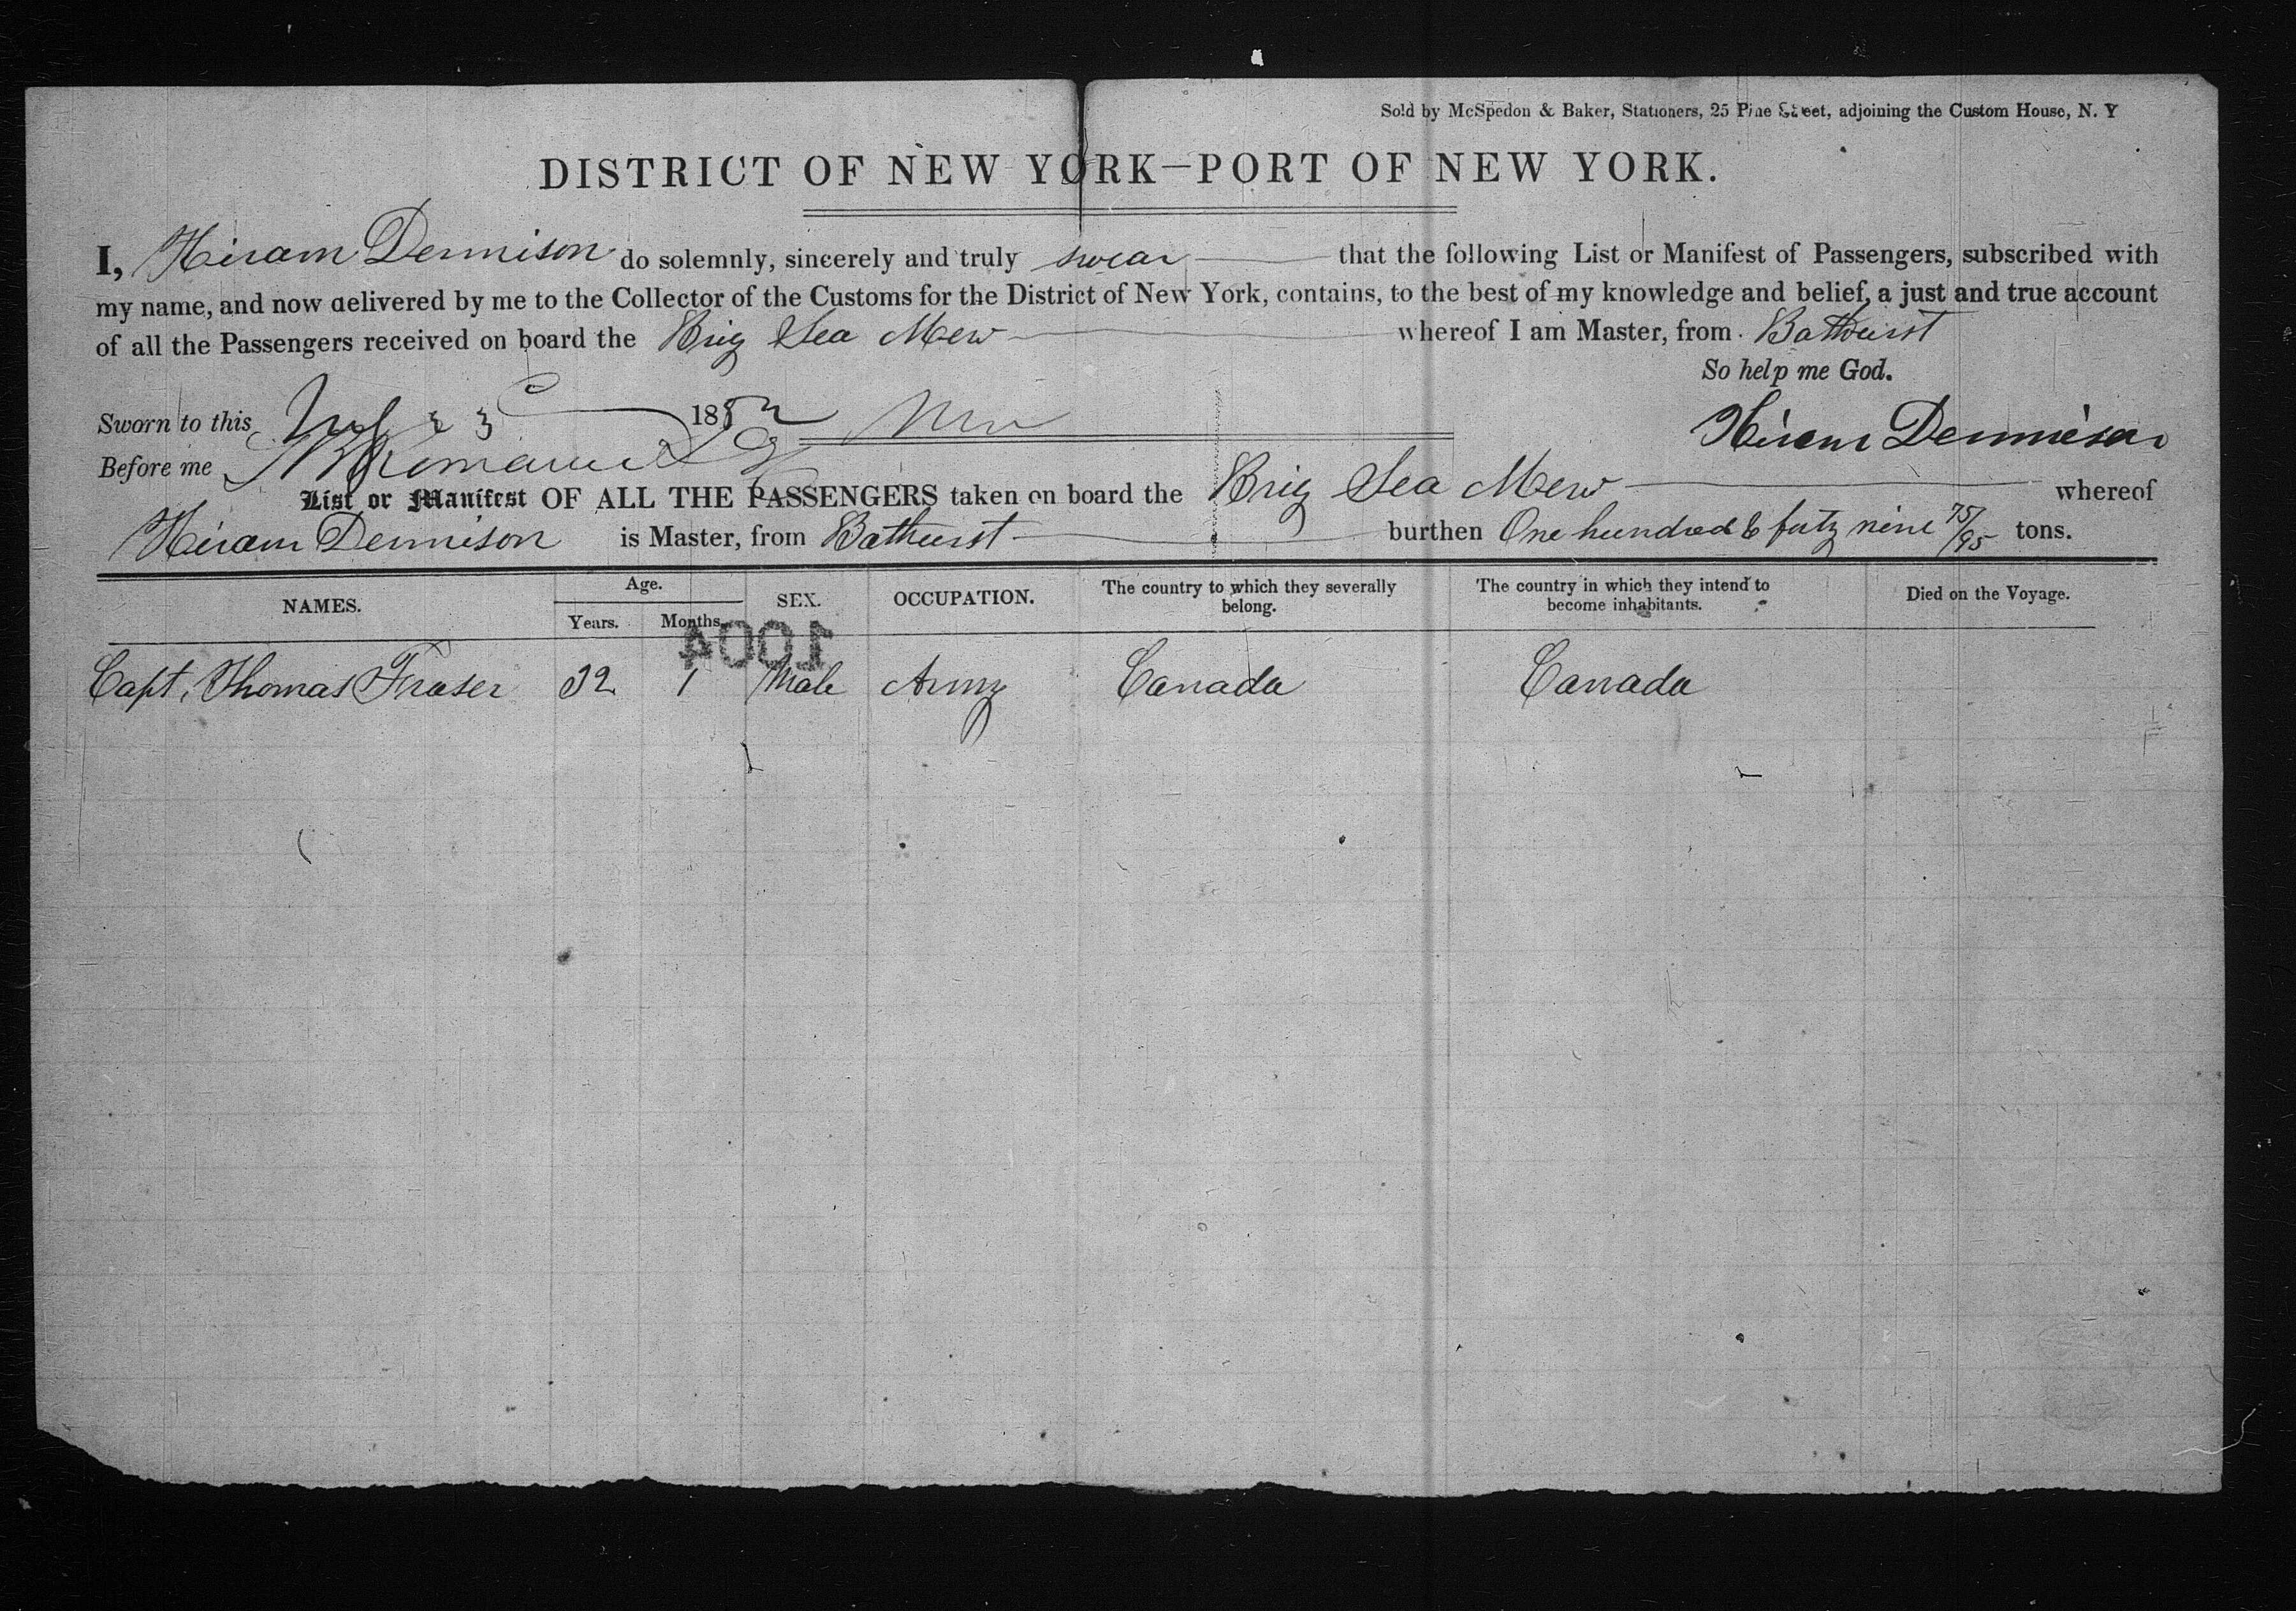 Sold by McSpedon & Baker, Stationers, 25 Pine Street, adjoining the Custom House, N. Y
DISTRICT OF NEW YORK—PORT OF NEW YORK.
I, Hiram Dennison do solemnly, sincerely and truly swear that the following List or Manifest of Passengers, subscribed with
my name, and now delivered by me to the Collector of the Customs for the District of New York, contains, to the best of my knowledge and belief, a just and true account
of all the Passengers received on board the Brig Sea Mew whereof I am Master, from Bathurst
So help me God.
Sworn to this 23 1852
Hiram Dennison
Before me
List or Manifest OF ALL THE PASSENGERS taken on board the Brig Sea Mew whereof
Hiram Dennison is Master, from Bathurst burthen One hundred & forty nine 75/95 tons.
NAMES. Age. Years. Months. SEX. OCCUPATION. The country to which they severally belong. The country in which they intend to become inhabitants. Died on the Voyage.
1004
Capt. Thomas Fraser 32 1 Male Army Canada Canada